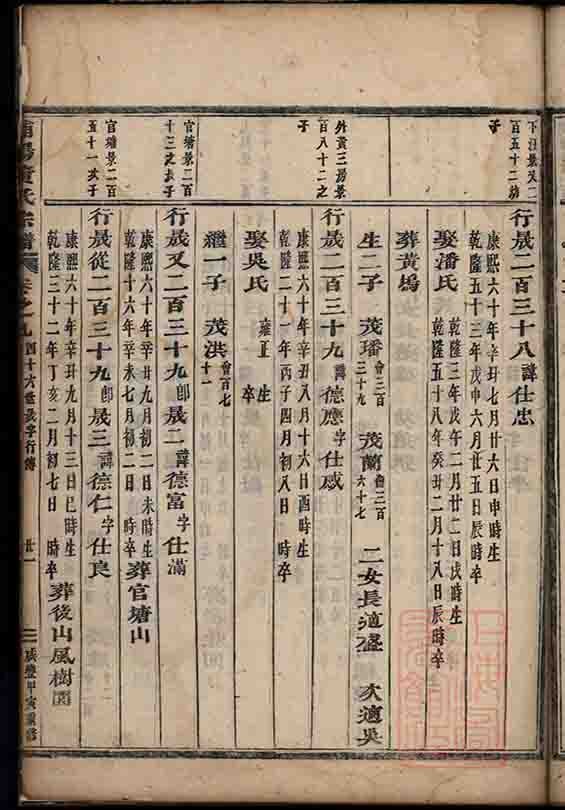 下汪景又二
百五十二幼
子
行晟二百三十八諱仕忠
康熙六十年辛丑七月廿六日申時生
乾隆五十三年戊申六月廿五日辰時卒
娶潘氏
乾隆三年戊午二月廿二日戌時生
乾隆五十八年癸丑二月十八日辰時卒
葬黃塢
生二子 茂璠 會三百三十九 茂蘭 會三百六十七 二女長適盛 次適吳
外黃三房景
百八十二之
子
行晟二百三十九諱德應字仕咸
康熙六十年辛丑八月十六日酉時生
乾隆二十一年丙子四月初八日 時卒
娶吳氏
雍正 生
繼一子 茂洪 會百七十一
官塘景二百
十三之次子
行晟又二百三十九郎晟二諱德富字仕滿
康熙六十年辛丑九月初二日未時生
乾隆十六年辛未七月初二日 時卒
葬官塘山
官塘景二百
五十一次子
行晟從二百三十九郎晟三諱德仁字仕良
康熙六十年辛丑九月十三日巳時生
乾隆三十二年丁亥二月初七日 時卒
葬後山風樹園
黃氏宗譜 卷之九 四十六世晟字行傳 廿一 咸豐甲寅重修